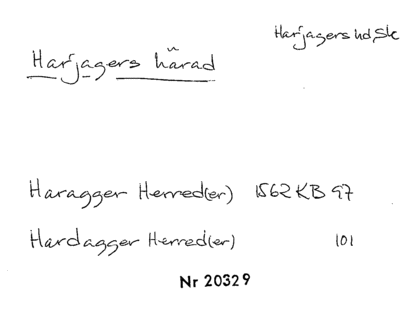 Harjagers hd, Sk
Harjagers härad
Haragger Herred(er) 1562 KB 97
Hardagger Herred(er) 101
Nr 20329